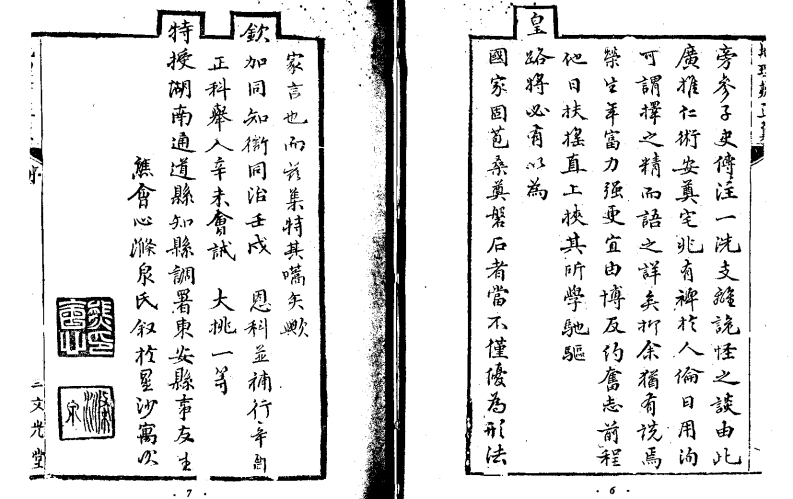 旁參子史傳注一洗支離詭怪之談由此
廣推仁術安奠宅兆有裨於人倫日用洵
可謂擇之精而語之詳矣抑余猶有說焉
榮生年富力强更宜由博反約奮志前程
他日扶搖直上挾其所學馳驅
皇路將必有以為
國家固苞桑奠磐石者當不僅優為形法
6
家言也而茲集特其嚆矢歟
欽加同知銜同治壬戌 恩科並補行辛酉
正科舉人辛未會試 大挑一等
特授湖南通道縣知縣調署東安縣事友生
熊會心滌泉氏叙於星沙寓次
序
文光堂
7